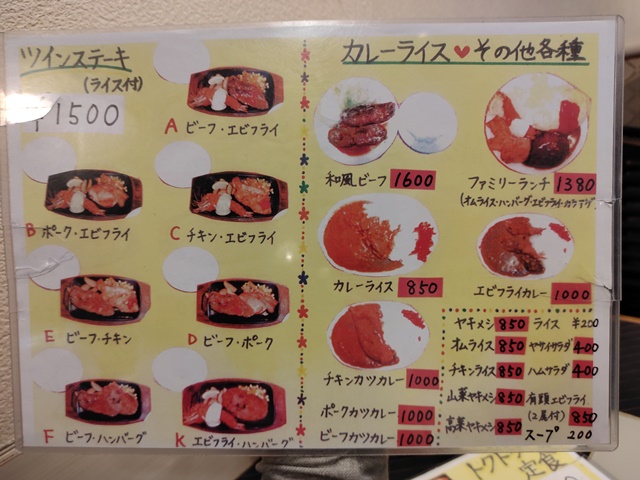 ツインステーキ
(ライス付)
¥1500
A ビーフ・エビフライ
B ポーク・エビフライ
C チキン・エビフライ
E ビーフ・チキン
D ビーフ・ポーク
F ビーフ・ハンバーグ
K エビフライ・ハンバーグ
カレーライス♥その他各種
和風ビーフ 1600
ファミリーランチ 1380
(オムライス・ハンバーグ・エビフライ・カラアゲ)
カレーライス 850
エビフライカレー 1000
チキンカツカレー 1000
ポークカツカレー 1000
ビーフカツカレー 1000
ヤキメシ 850
オムライス 850
チキンライス 850
山菜ヤキメシ 850
高菜ヤキメシ 850
ライス ¥200
ヤサイサラダ 400
ハムサラダ 400
有頭エビフライ
(2尾付) 850
スープ 200
定食